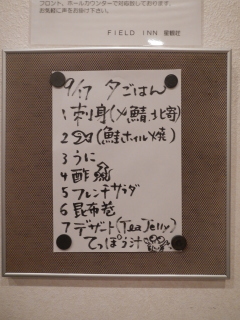 フロント、ホールカウンターで可能致しております。
お気軽に声をお掛け下さい。
FIELD INN
9/17 夕ごはん
1 刺身(〆鯖,北寄)
2 (鮭ホイル焼)
3 うに
4 酢
5 フレンチサラダ
6 昆布巻
7 デザート(Tea Jelly)
てっぽう汁